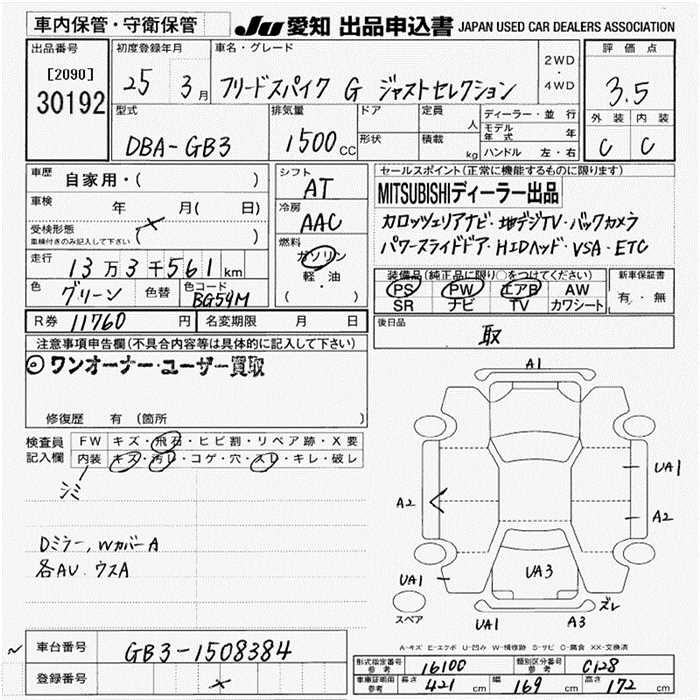 車内保管・守衛保管
JU 愛知 出品申込書 JAPAN USED CAR DEALERS ASSOCIATION
出品番号
[2090]
30192
初度登録年月
25 3月
車名・グレード
フリードスパイク G ジャストセレクション
2WD
・
4WD
評価点
3.5
外装 内装
C C
型式
DBA-GB3
排気量
1500 cc
ドア
形状
定員 人
積載 kg
ディーラー・並行
モデル年式 年
ハンドル 左・右
車歴 自家用・( )
車検 年 月(日)
受検形態
車検付きのみ記入して下さい ( )
走行 13万3千561km
色 グリーン 色替 色コード BG59M
シフト
AT
冷房
AAC
燃料
ガソリン
軽・油
( )
セールスポイント(正常に機能するものに限ります)
MITSUBISHIディーラー出品
カロッツェリアナビ・地デジTV・バックカメラ
パワースライドドア・HIDヘッド・VSA・ETC
装備品(純正品に限り○をつけてください)
PS PW エアB AW
SR ナビ TV カワシート
新車保証書
有・無
R券 11760 円 名変期限 月 日
後日品
取
注意事項申告欄(不具合内容等は具体的に記入して下さい)
◎ワンオーナー・ユーザー買取
修復歴 有 (箇所 )
検査員
記入欄
FW キズ・飛石・ヒビ割・リペア跡・X要
内装 キズ・汚レ・コゲ・穴・スレ・キレ・破レ
シミ
Dミラー,WカバーA
各AU.ウスA
A1
UA1
A2
A2
UA3
UA1
スペア
UA1
A3
ズレ
A-キズ E-エクボ U-凹み W-補修跡 S-サビ C-腐食 XX-交換済
車台番号 GB3-1508384
登録番号
形式指定番号 参考 16100 類別区分番号 参考 C128
車庫証明用 参考 長さ 421 cm 幅 169 cm 高さ 172 cm